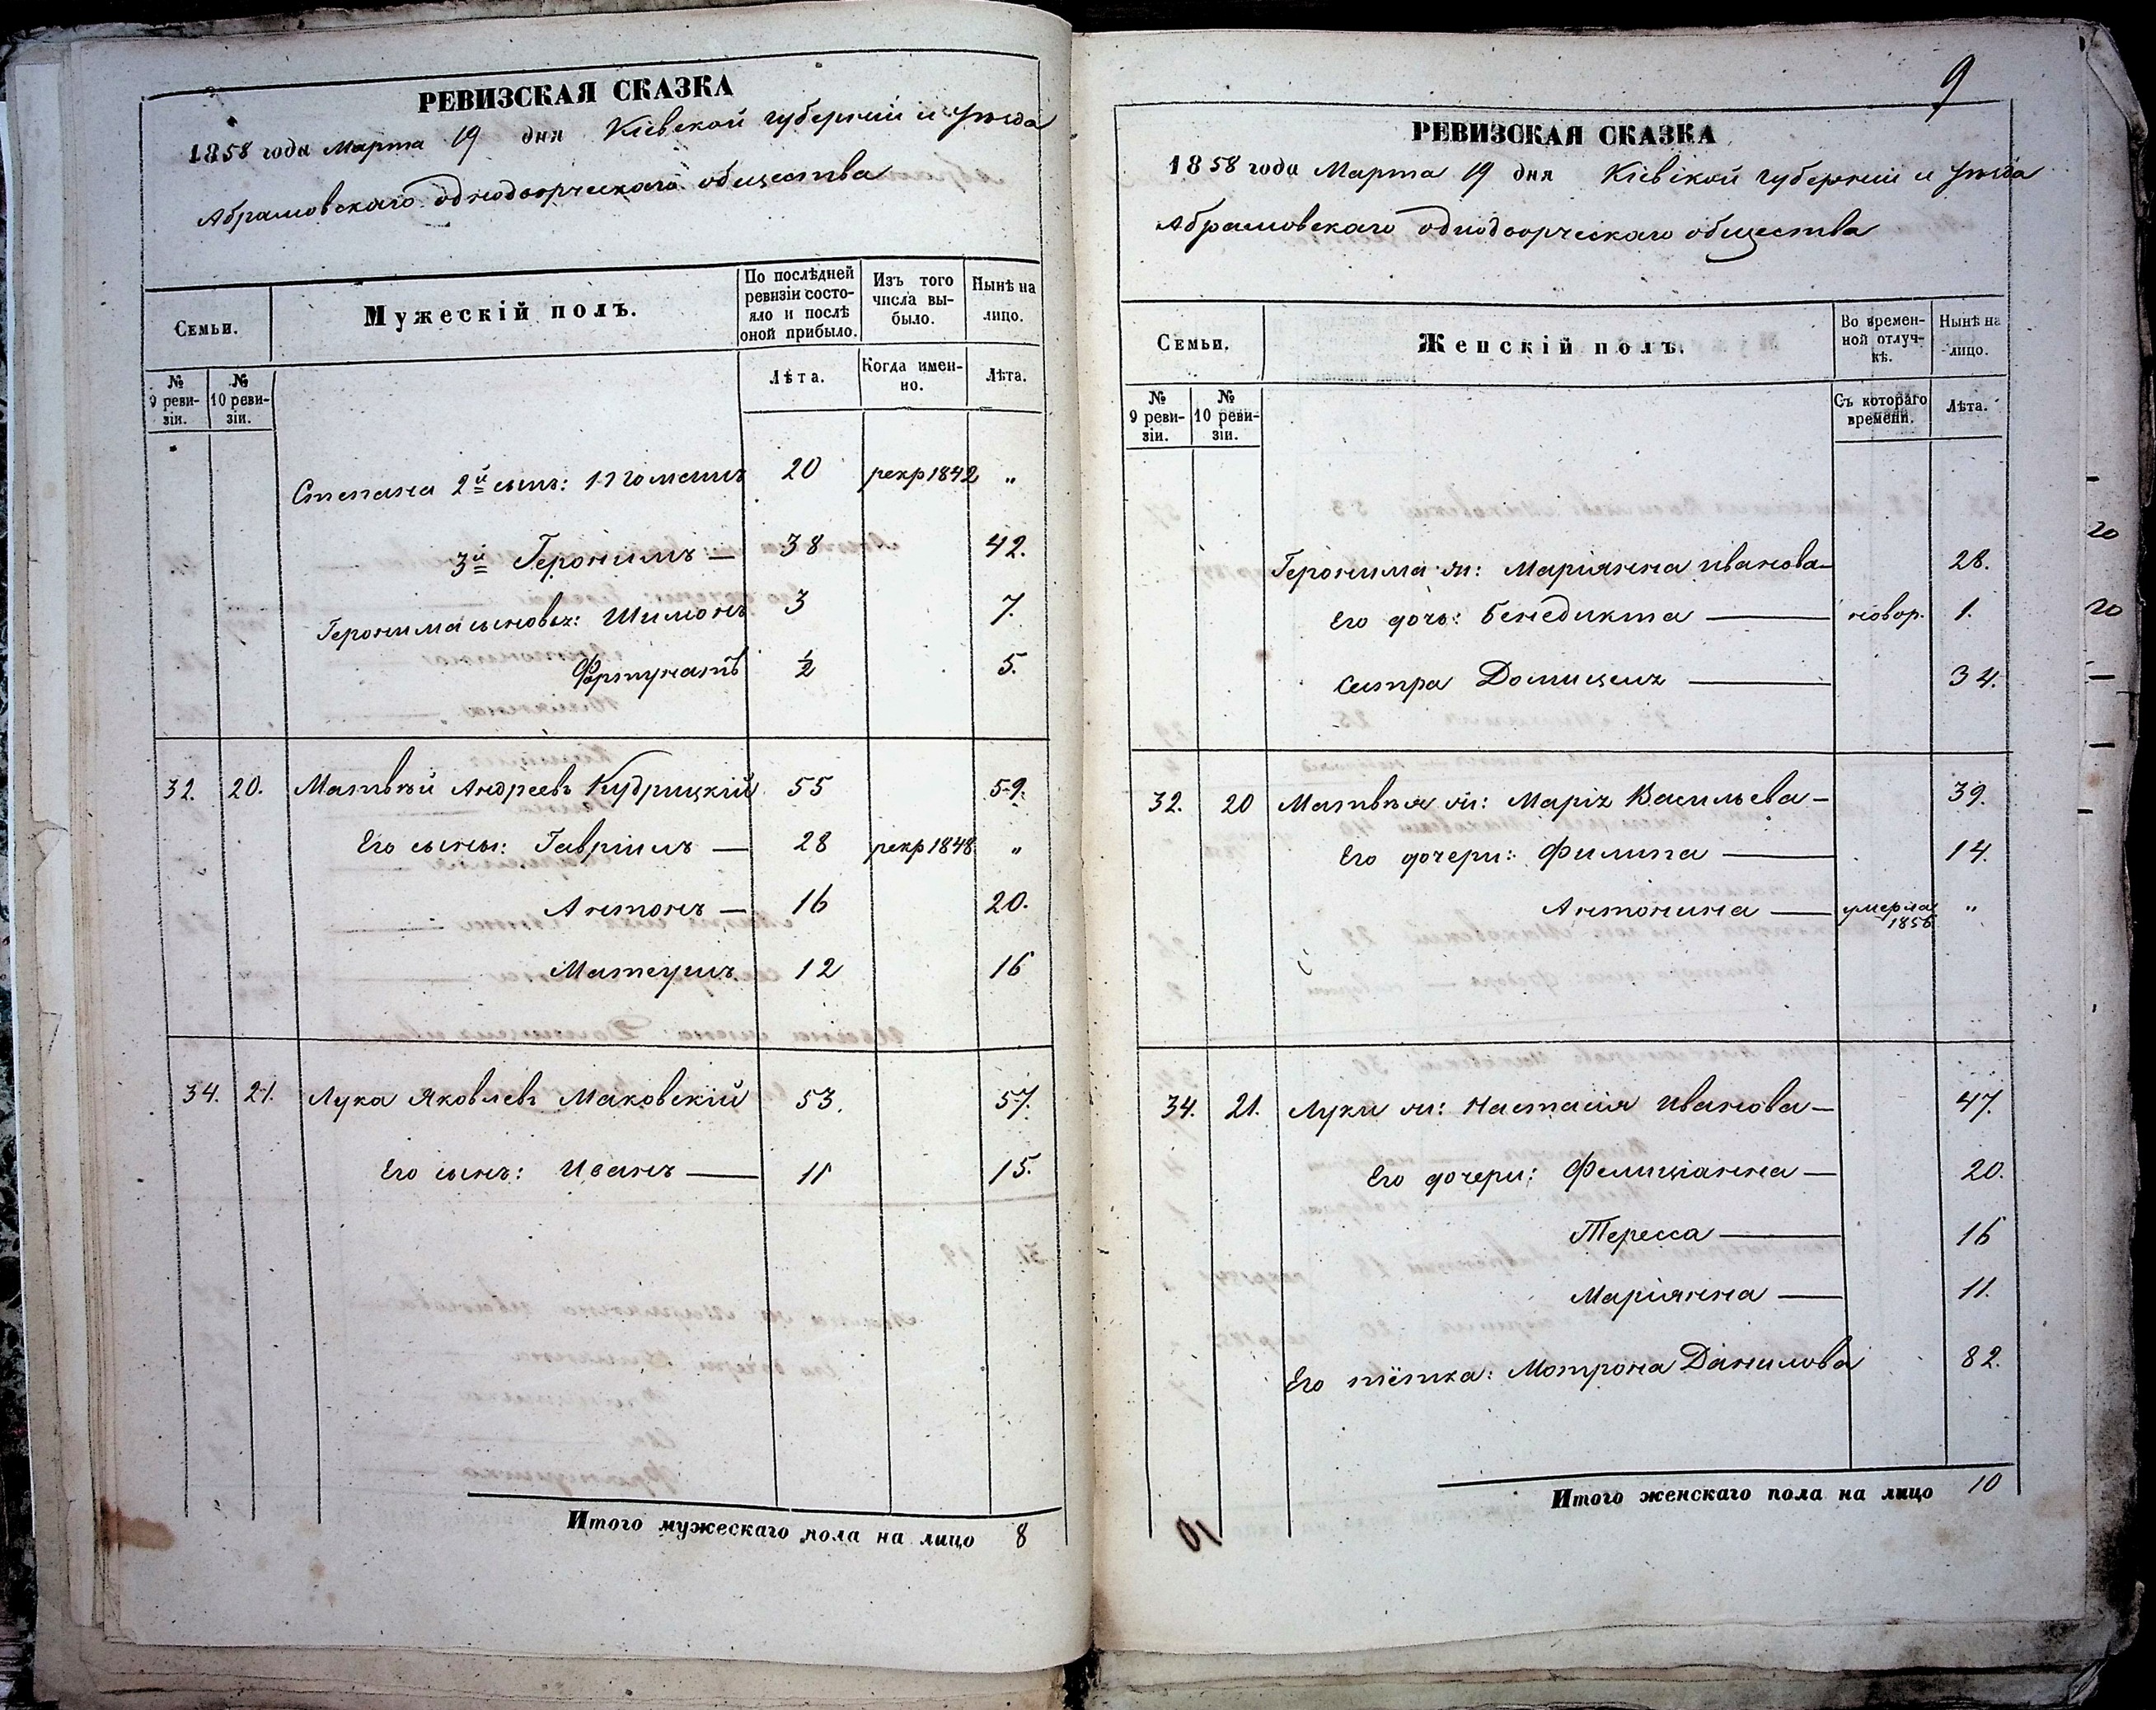 РЕВИЗСКАЯ СКАЗКА
1858 года Марта 19 дня Кіевской губерніи и уѣзда
Абрамовскаго однодворческаго общества
Семьи.
Мужескій полъ.
По послѣдней ревизіи состояло и послѣ оной прибыло.
Изъ того числа выбыло.
Нынѣ на лицо.
№ 9 ревизіи.
№ 10 ревизіи.
Лѣта.
Когда именно.
Лѣта.
Степана 2й сынъ: 20 рекр 1842 "
3й Геронимъ — 38 42.
Геронима сыновья: Шимонъ 3 7.
Фортунатъ ½ 5.
32. 20. Матвѣй Андреевъ Кудрицкій 55 59.
Его сыны: Гавріилъ — 28 рекр 1848 "
Антонъ — 16 20.
Матеушъ 12 16
34. 21. Лука Яковлевъ Маковскій 53. 57.
Его сынъ: Иванъ — 11 15.
Итого мужескаго пола на лицо 8
9
РЕВИЗСКАЯ СКАЗКА
1858 года Марта 19 дня Кіевской губерніи и уѣзда
Абрамовскаго однодворческаго общества
Семьи.
Женскій полъ.
Во временной отлучкѣ.
Нынѣ на лицо.
№ 9 ревизіи.
№ 10 ревизіи.
Съ котораго времени.
Лѣта.
Геронима ж: Маріянна Иванова — 28.
Его дочь: Бенедикта — новор. 1.
сестра Домицеля — 34.
32. 20 Матвѣя ж: Марія Васильева — 39.
Его дочери: Филипа — 14.
Антонина — умерла 1856 "
34. 21. Луки ж: Настасія Иванова — 47.
Его дочери: Фелиціанна — 20.
Тересса — 16
Маріянна — 11.
Его тётка: Мотрона Данилова 82.
Итого женскаго пола на лицо 10
10